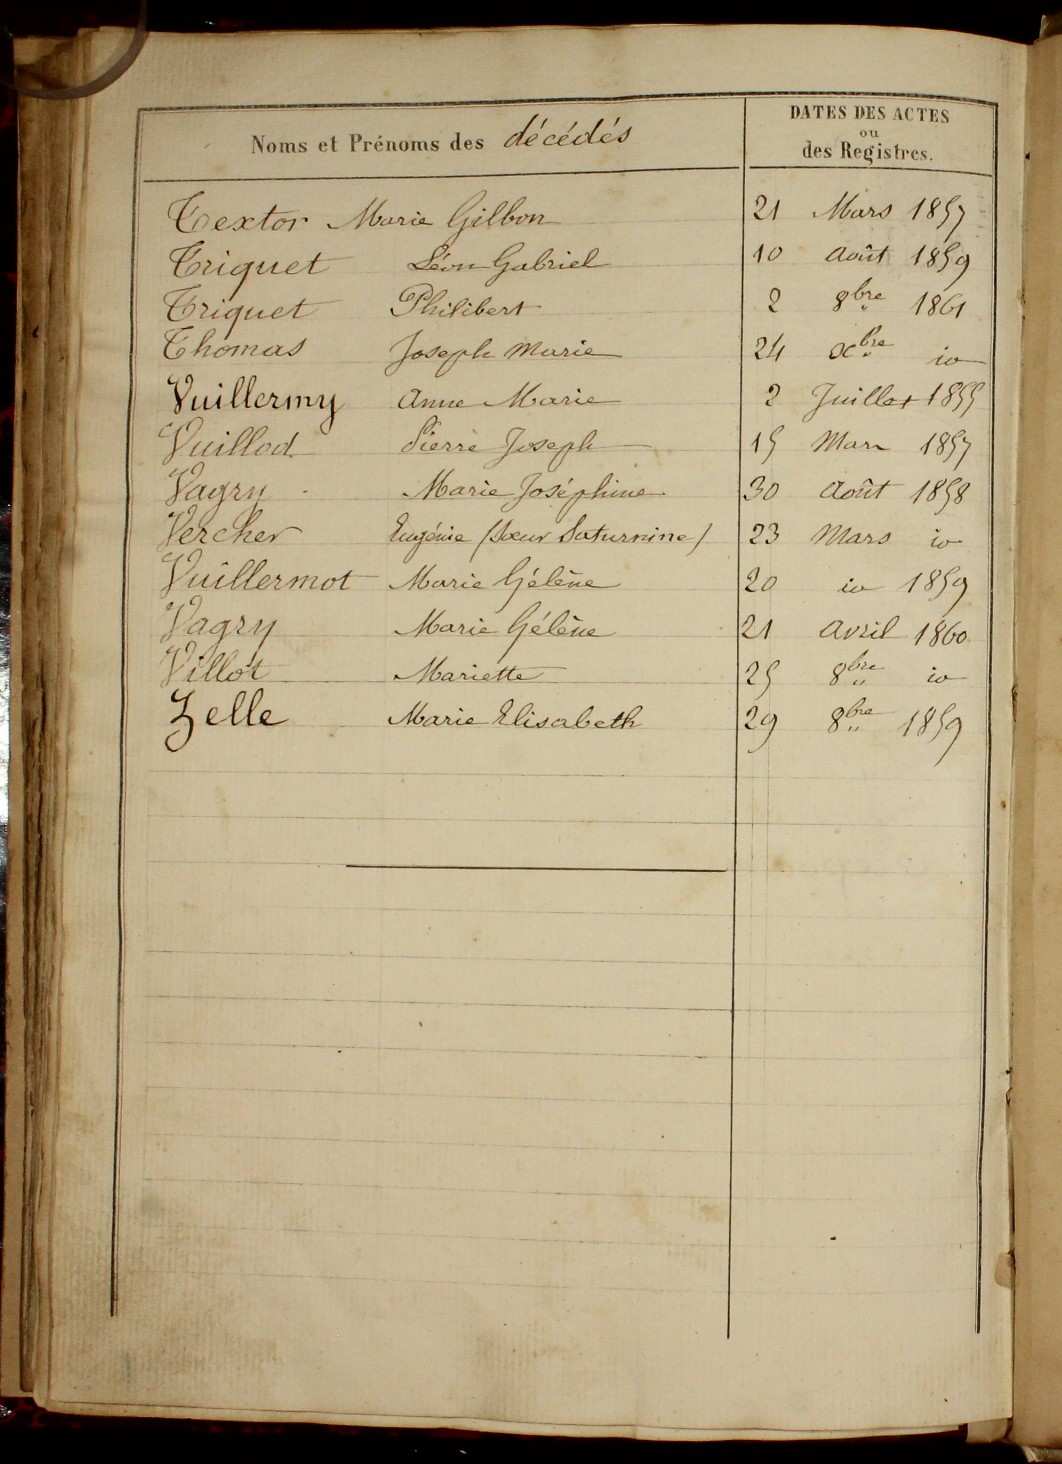 Noms et Prénoms des décédés
DATES DES ACTES
ou
des Registres.
Textor Marie Gilbon 21 Mars 1857
Triquet Léon Gabriel 10 Août 1859
Triquet Philibert 2 8bre 1861
Thomas Joseph Marie 24 Xbre io
Vuillermy Anne Marie 2 Juillet 1855
Vuillod Pierre Joseph 15 Mars 1857
Vagry Marie Joséphine 30 Août 1858
Vercher Eugénie (Sœur Saturnine) 23 Mars io
Vuillermot Marie Hélène 20 io 1859
Vagry Marie Hélène 21 Avril 1860
Villot Mariette 25 8bre io
Zelle Marie Elisabeth 29 8bre 1859